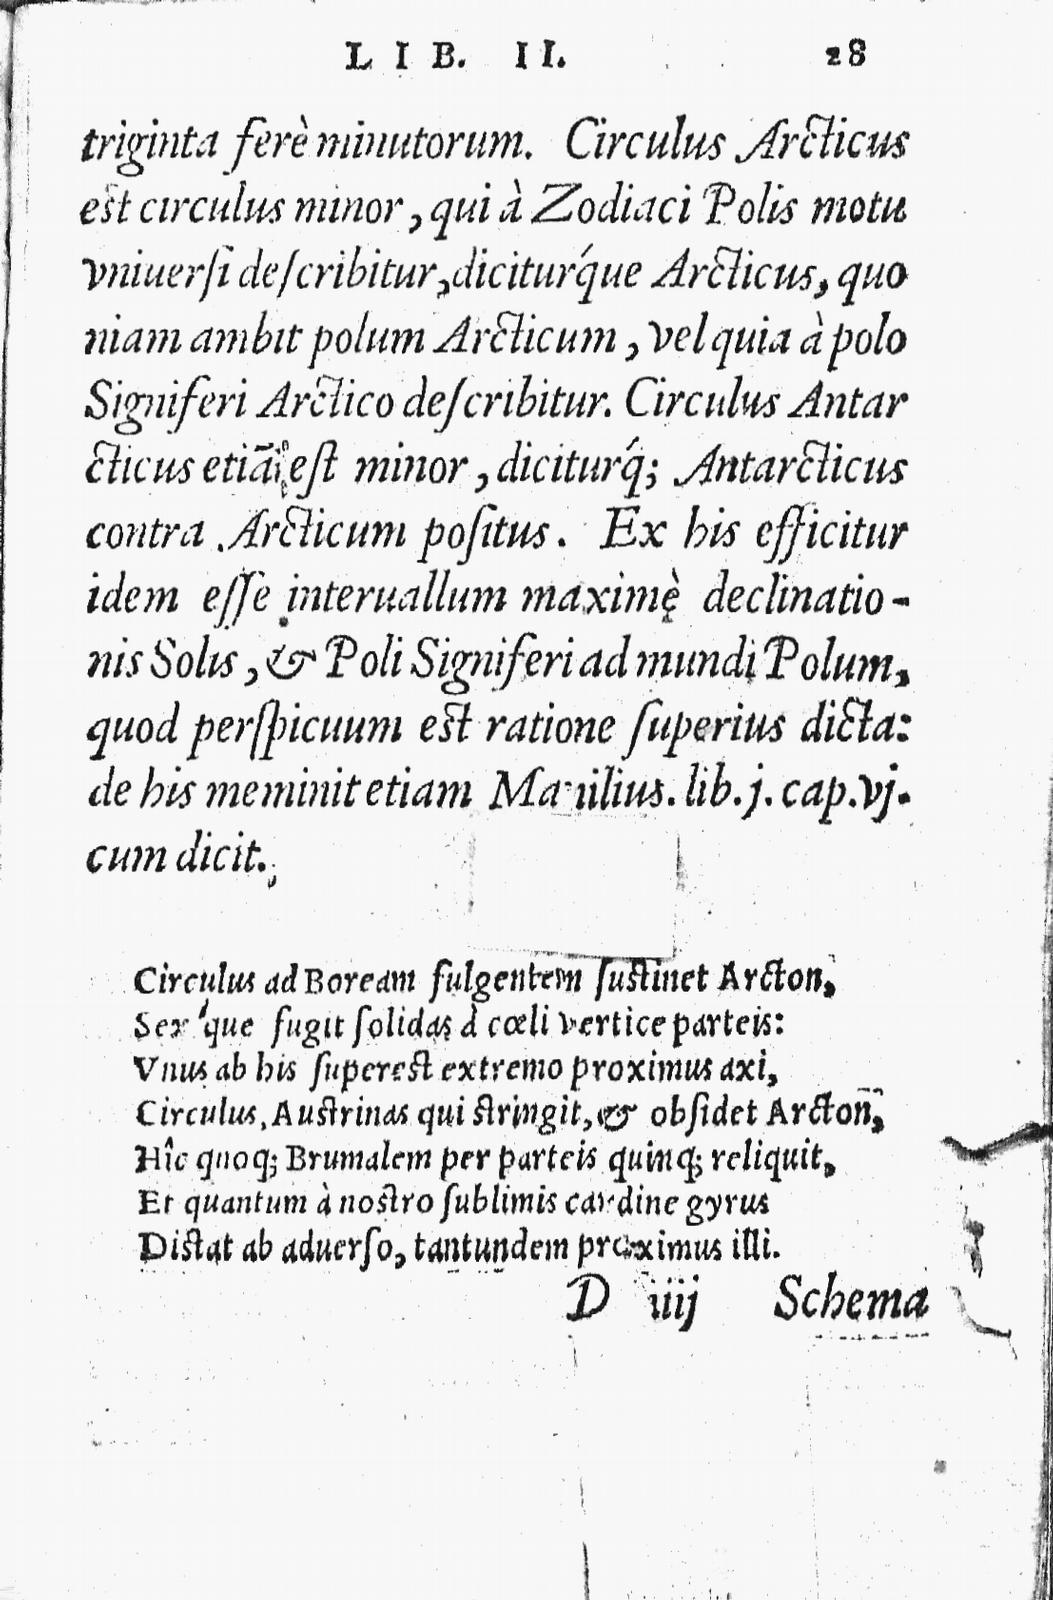 LIB. II. 28
triginta ferè minutorum. Circulus Arcticus
est circulus minor, qui à Zodiaci Polis motu
vniuerſi deſcribitur, diciturq́ue Arcticus, quo
niam ambit polum Arcticum, vel quia à polo
Signiferi Arctico deſcribitur. Circulus Antar
cticus etiã eſt minor, diciturq́; Antarcticus
contra Arcticum poſitus. Ex his efficitur
idem eſſe interuallum maximę̀ declinatio-
nis Solis, & Poli Signiferi ad mundi Polum,
quod perſpicuum est ratione ſuperius dicta:
de his meminit etiam Manilius. lib. j. cap. vj.
cum dicit.
Circulus ad Boream fulgentem ſustinet Arcton,
Sex'que fugit ſolidas à cœli vertice parteis:
Vnus ab his ſuperest extremo proximus axi,
Circulus, Austrinas qui stringit, & obſidet Arcton,
Hîc quoq; Brumalem per parteis quinq; reliquit,
Et quantum à nostro ſublimis cardine gyrus
Distat ab aduerſo, tantundem proximus illi.
D iiij Schema